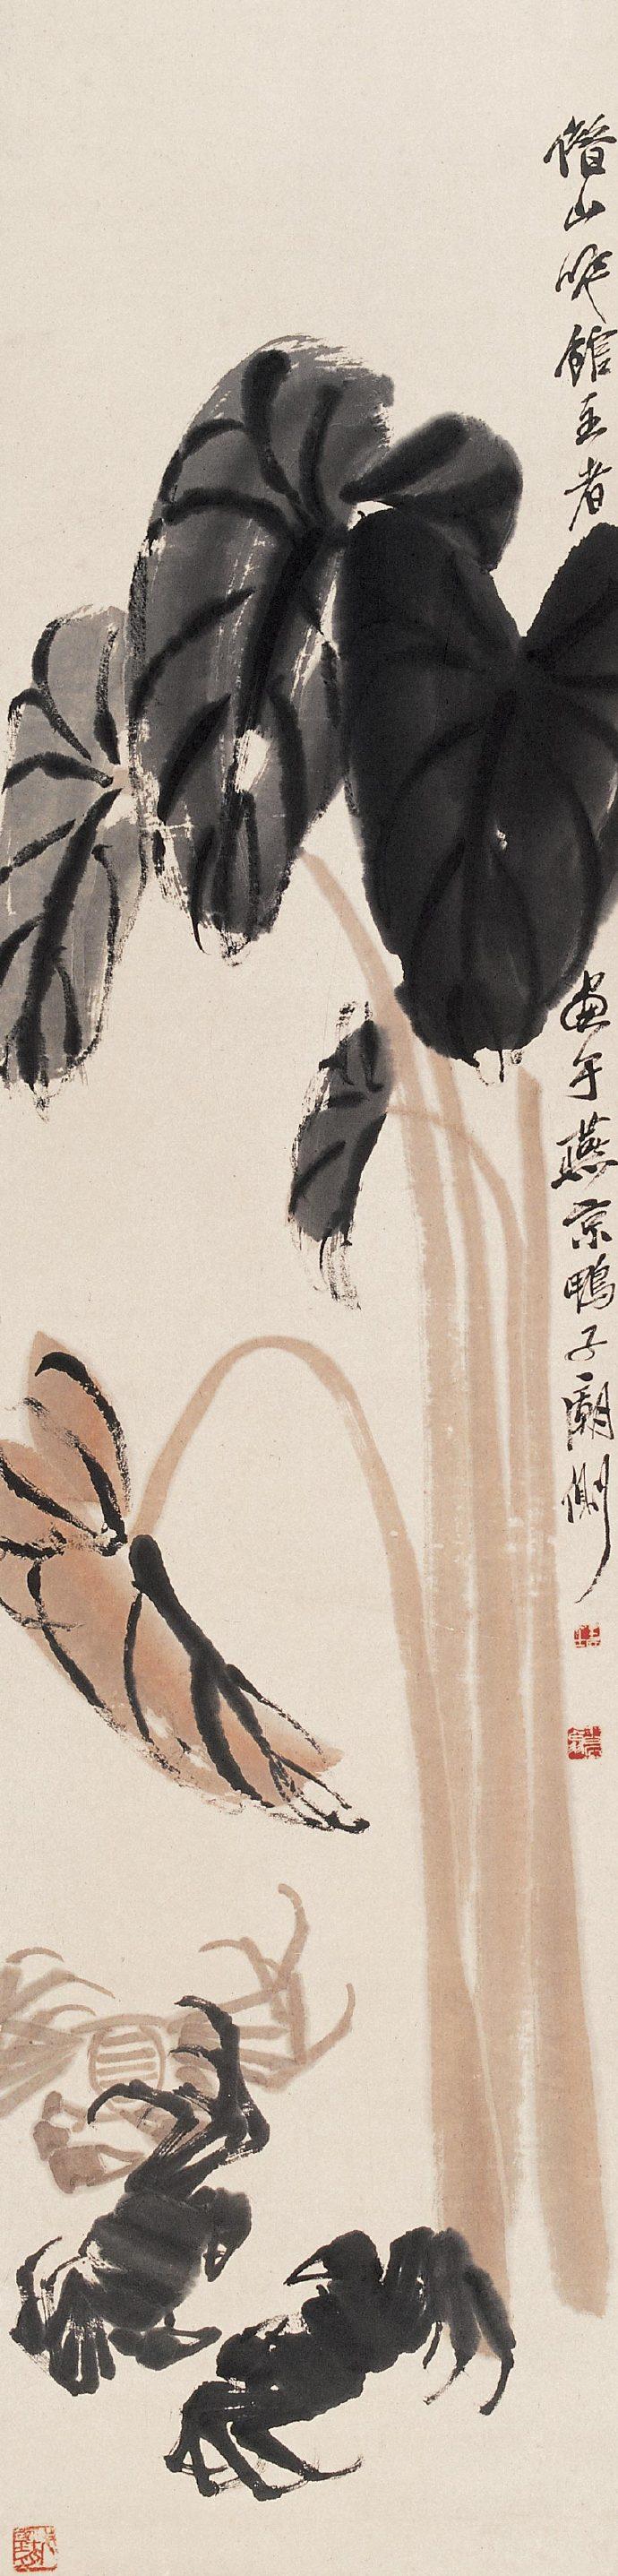 借山吟館主者
畫于燕京鴨子廟側